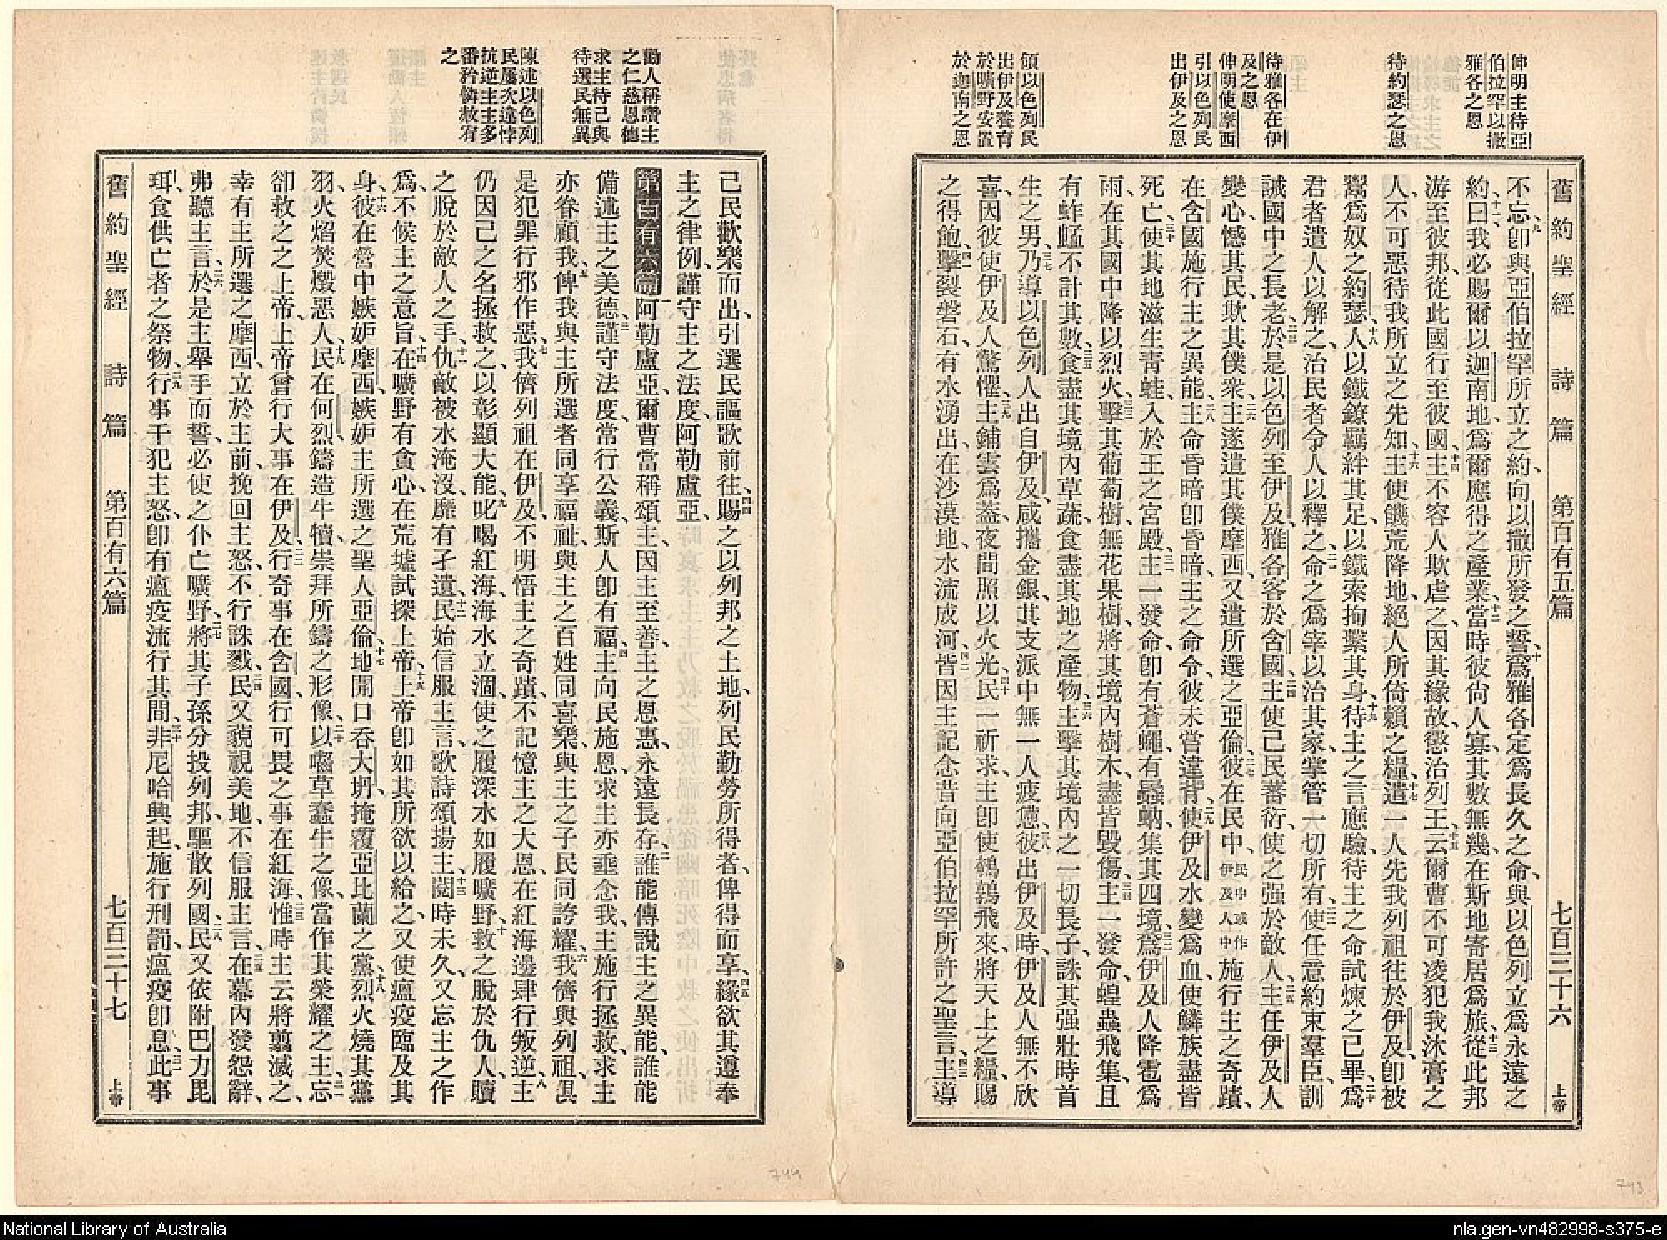 伸明主待亞
伯拉罕以撒
雅各之恩
待約瑟之恩
待雅各在伊
及之恩
伸明使摩西
引以色列民
出伊及之恩
領以色列民
出伊及養育
於曠野安置
於迦南之恩
舊約聖經 詩篇 第百有五篇 七百三十六 上帝
不忘九卽與亞伯拉罕所立之約、向以撒所發之誓、十爲雅各定爲長久之命、與以色列立爲永遠之
約、十一曰我必賜爾以迦南地、爲爾應得之產業、十二當時彼尙人寡、其數無幾、在斯地寄居爲旅、十三從此邦
游至彼邦、從此國行至彼國、十四主不容人欺虐之、因其緣故、懲治列王、十五云爾曹不可凌犯我沐膏之
人、不可惡待我所立之先知、十六主使饑荒降地、絕人所倚賴之糧、十七遣一人先我列祖往於伊及、卽被
鬻爲奴之約瑟、十八人以鐵鐐羈絆其足、以鐵索拘繫其身、十九待主之言應驗、待主之命試煉之已畢、二十爲
君者遣人以解之、治民者令人以釋之、二一命之爲宰、以治其家、掌管一切所有、二二使任意約束羣臣、訓
誡國中之長老、二三於是以色列至伊及、雅各客於含國、二四主使己民蕃衍、使之强於敵人、二五主任伊及人
變心、憾其民、欺其僕衆、二六主遂遣其僕摩西、又遣所選之亞倫、二七彼在民中民中或作伊及人中施行主之奇蹟、
在含國施行主之異能、二八主命昏暗、卽昏暗、主之命令、彼未嘗違背、二九使伊及水變爲血、使鱗族盡皆
死亡、三十使其地滋生青蛙、入於王之宮殿、三一主一發命、卽有蒼蠅、有蝨蚋集其四境、三二爲伊及人降雹爲
雨、在其國中降以烈火、三三擊其葡萄樹無花果樹、將其境內樹木盡皆毀傷、三四主一發命、蝗蟲飛集、且
有蚱蜢不計其數、三五食盡其境內草蔬、食盡其地之產物、三六主擊其境內之一切長子、誅其强壯時首
生之男、三七乃導以色列人出自伊及、咸攜金銀、其支派中無一人疲憊、三八彼出伊及時、伊及人無不欣
喜、因彼使伊及人驚懼、三九主鋪雲爲蓋、夜間照以火光、四十民一祈求、主卽使鵪鶉飛來、將天上之糧賜
之得飽、四一擊裂磐石、有水湧出、在沙漠地水流成河、四二皆因主記念昔向亞伯拉罕所許之聖言、四三主導
爾人稱讚主
之仁慈恩德
求主待己與
待選民無異
陳述以色列
民屢次違悖
抗逆主主多
番矜憐救宥
之
己民歡樂而出、引選民謳歌前往、四四賜之以列邦之土地、列民勤勞所得者、俾得而享、四五緣欲其遵奉
主之律例、謹守主之法度、阿勒盧亞、
第百有六篇 一阿勒盧亞、爾曹當稱頌主、因主至善、主之恩惠、永遠長存、二誰能傳說主之異能、誰能
備述主之美德、三謹守法度、常行公義、斯人卽有福、四主向民施恩、求主亦垂念我、主施行拯救、求主
亦眷顧我、五俾我與主所選者同享福祉、與主之百姓同喜樂、與主之子民同誇耀、六我儕與列祖俱
是犯罪、行邪作惡、七我儕列祖在伊及不明悟主之奇蹟、不記憶主之大恩、在紅海邊肆行叛逆、八主
仍因己之名拯救之、以彰顯大能、九叱喝紅海、海水立涸、使之履深水如履曠野、十救之脫於仇人、贖
之脫於敵人之手、十一仇敵被水淹沒、靡有孑遺、十二民始信服主言、歌詩頌揚主、十三閱時未久、又忘主之作
爲、不候主之意旨、十四在曠野有貪心、在荒墟試探上帝、十五上帝卽如其所欲以給之、又使瘟疫臨及其
身、十六彼在營中嫉妬摩西、嫉妬主所選之聖人亞倫、十七地開口吞大坍、掩覆亞比蘭之黨、十八烈火燒其黨
羽、火焰焚燬惡人、十九民在何烈鑄造牛犢、崇拜所鑄之形像、二十以囓草蠢牛之像、當作其榮耀之主、二一忘
卻救之之上帝、上帝曾行大事在伊及、二二行奇事在含國、行可畏之事在紅海、二三惟時主云、將翦滅之、
幸有主所選之摩西立於主前、挽回主怒、不行誅戮、二四民又藐視美地、不信服主言、二五在幕內發怨辭、
弗聽主言、二六於是主舉手而誓、必使之仆亡曠野、二七將其子孫分投列邦、驅散列國、二八民又依附巴力毘
珥、食供亡者之祭物、二九行事干犯主怒、卽有瘟疫流行其間、三十非尼哈興起、施行刑罰、瘟疫卽息、三一此事
舊約聖經 詩篇 第百有六篇 七百三十七 上帝
744
743
National Library of Australia
nla.gen-vn482998-s375-e